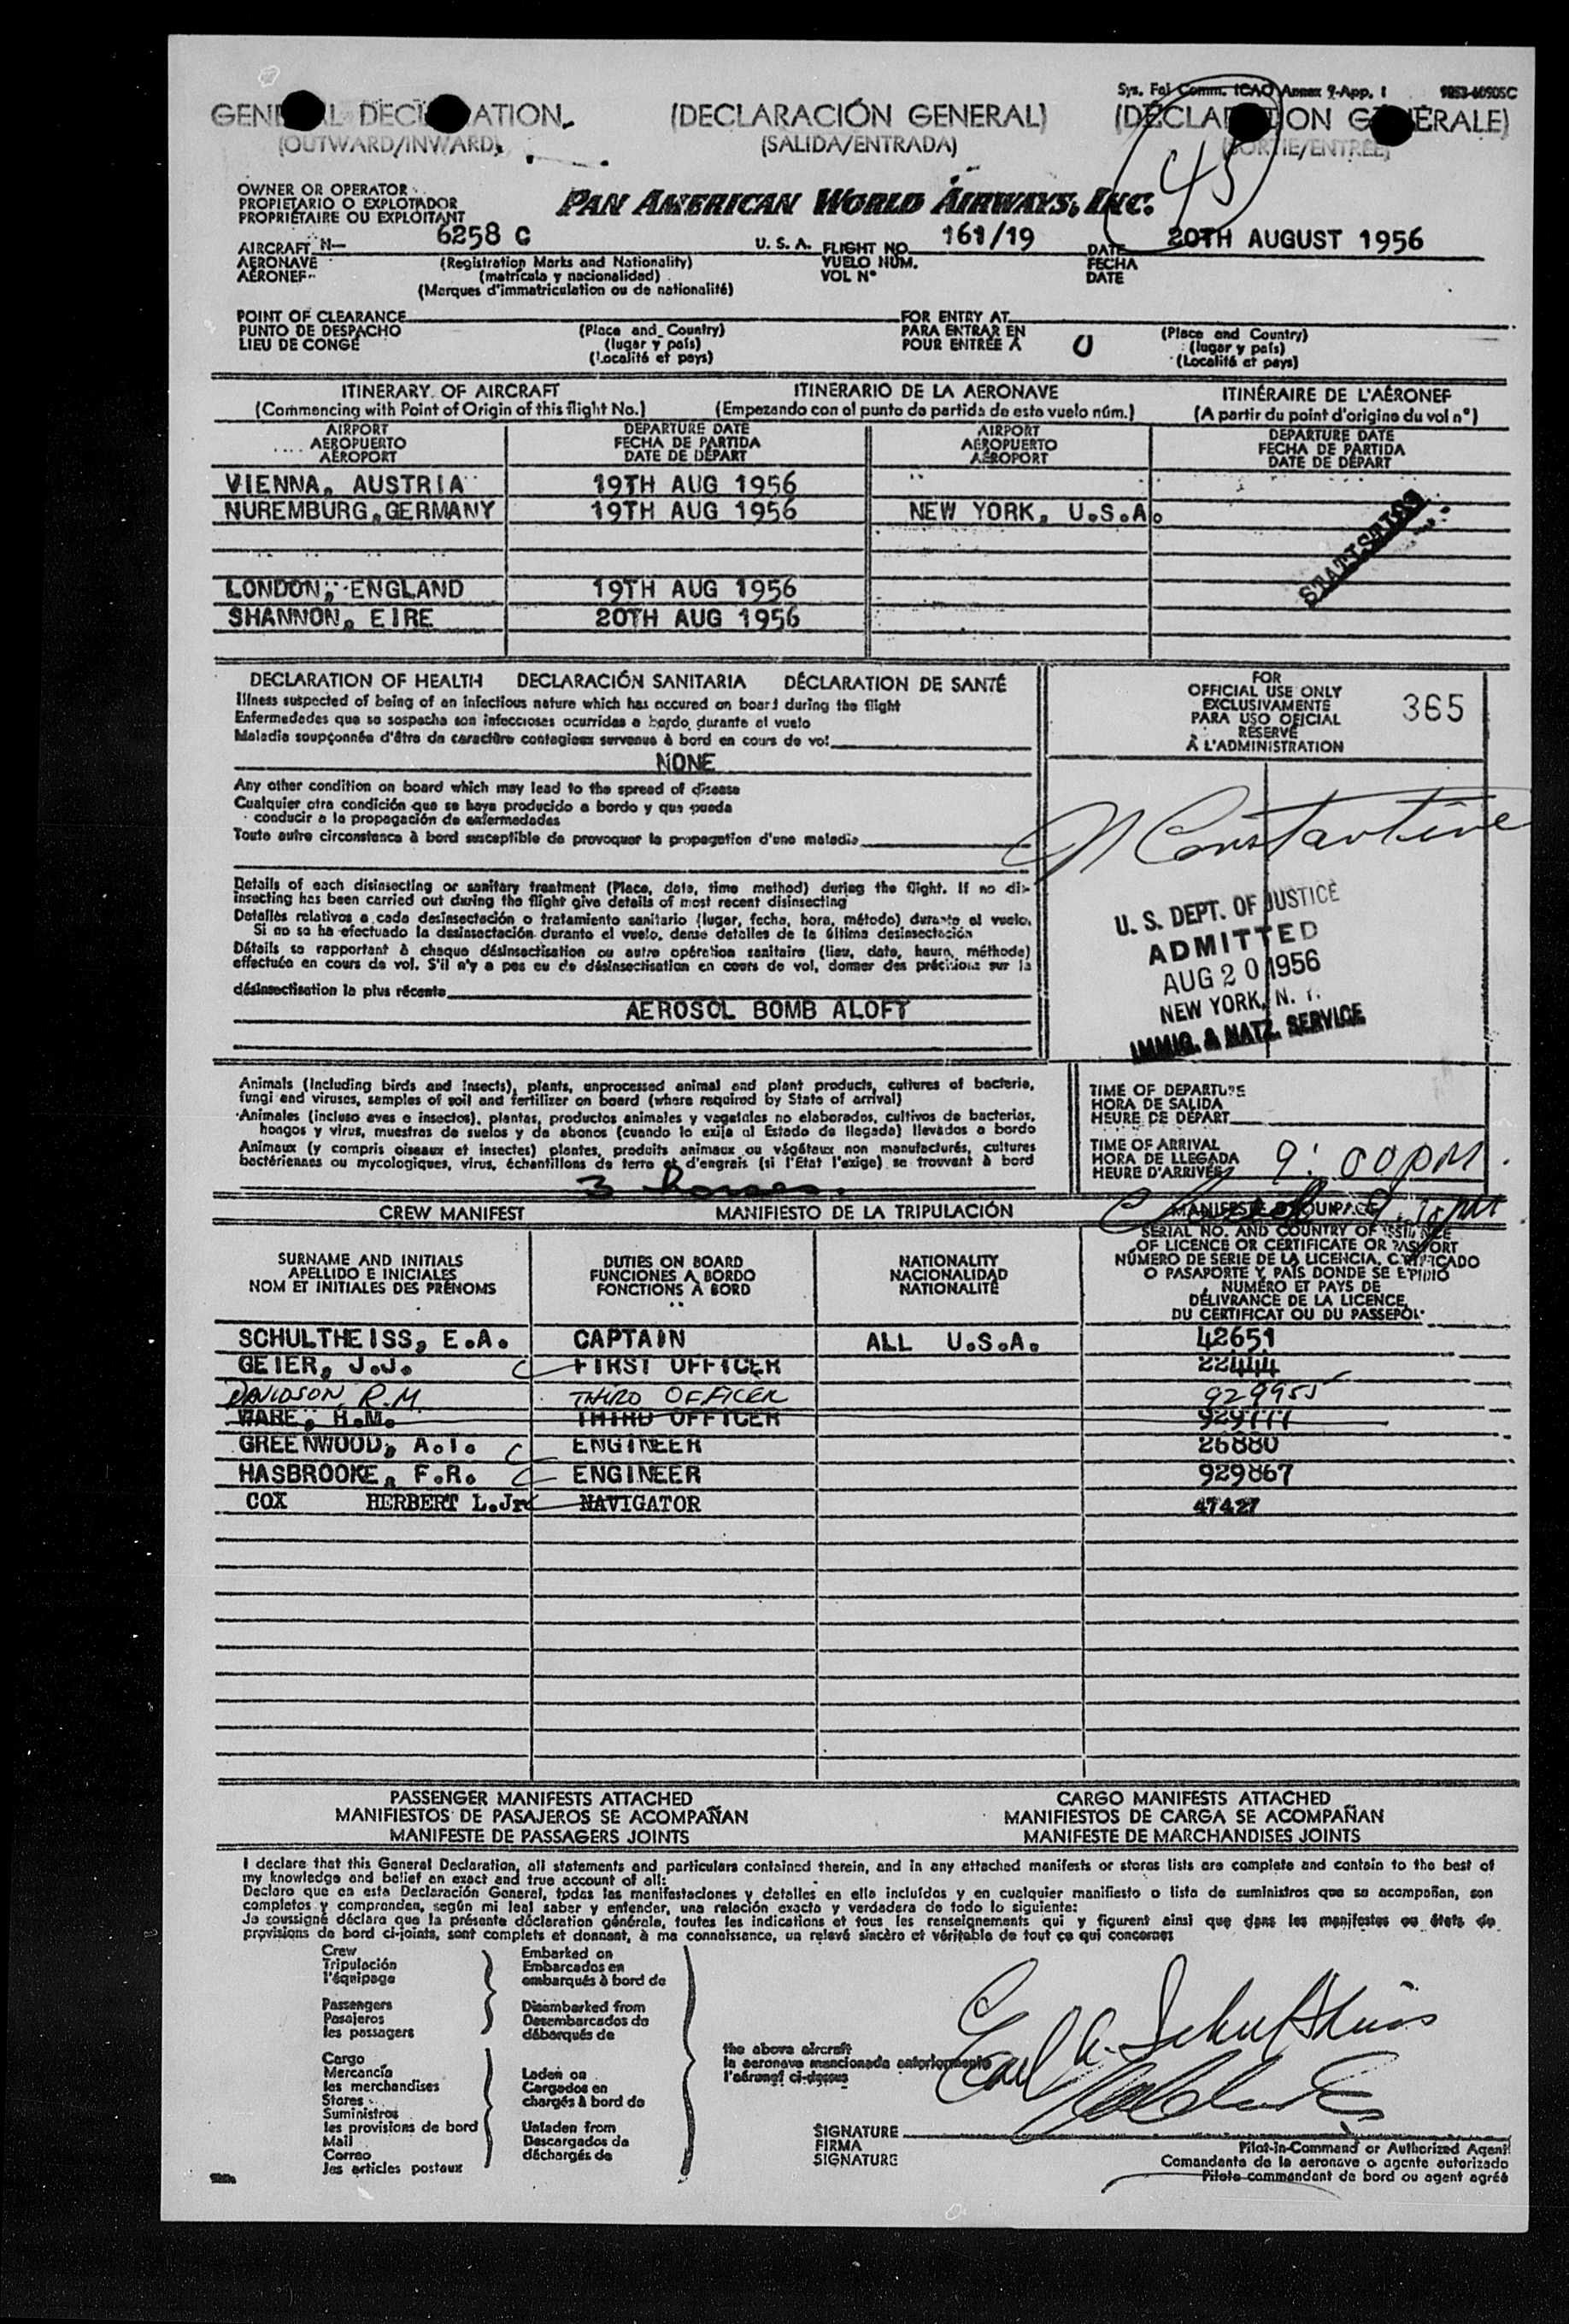 Sys. Fal Comm. ICAO Annex 9-App. 1
GENERAL DECLARATION (DECLARACIÓN GENERAL) (DÉCLARATION GÉNÉRALE)
(OUTWARD/INWARD) (SALIDA/ENTRADA) (SORTIE/ENTRÉE)
45
OWNER OR OPERATOR
PROPIETARIO O EXPLOTADOR
PROPRIÉTAIRE OU EXPLOITANT
PAN AMERICAN WORLD AIRWAYS, INC.
AIRCRAFT N- 6258 C U. S. A. FLIGHT NO. 161/19 DATE 20TH AUGUST 1956
AERONAVE (Registration Marks and Nationality) VUELO NÚM. FECHA
AÉRONEF (matrícula y nacionalidad) VOL N° DATE
(Marques d'immatriculation ou de nationalité)
POINT OF CLEARANCE FOR ENTRY AT
PUNTO DE DESPACHO (Place and Country) PARA ENTRAR EN (Place and Country)
LIEU DE CONGÉ (lugar y país) POUR ENTRÉE A U (lugar y país)
(Localité et pays) (Localité et pays)
ITINERARY OF AIRCRAFT ITINERARIO DE LA AERONAVE ITINÉRAIRE DE L'AÉRONEF
(Commencing with Point of Origin of this flight No.) (Empezando con el punto de partida de este vuelo núm.) (A partir du point d'origine du vol n°)
AIRPORT DEPARTURE DATE AIRPORT DEPARTURE DATE
AEROPUERTO FECHA DE PARTIDA AEROPUERTO FECHA DE PARTIDA
AÉROPORT DATE DE DÉPART AÉROPORT DATE DE DÉPART
VIENNA, AUSTRIA 19TH AUG 1956
NUREMBURG, GERMANY 19TH AUG 1956 NEW YORK, U.S.A.
LONDON, ENGLAND 19TH AUG 1956
SHANNON, EIRE 20TH AUG 1956
DECLARATION OF HEALTH DECLARACIÓN SANITARIA DÉCLARATION DE SANTÉ
Illness suspected of being of an infectious nature which has occured on board during the flight
Enfermedades que se sospecha son infecciosas ocurridas a bordo durante el vuelo
Maladie soupçonnée d'être de caractère contagieux survenue à bord en cours de vol
NONE
Any other condition on board which may lead to the spread of disease
Cualquier otra condición que se haya producido a bordo y que pueda
conducir a la propagación de enfermedades
Toute autre circonstance à bord susceptible de provoquer la propagation d'une maladie
Details of each disinsecting or sanitary treatment (Place, date, time method) during the flight. If no dis-
insecting has been carried out during the flight give details of most recent disinsecting
Detalles relativos a cada desinsectación o tratamiento sanitario (lugar, fecha, hora, método) durante el vuelo.
Si no se ha efectuado la desinsectación durante el vuelo, dense detalles de la última desinsectación
Détails se rapportant à chaque désinsectisation ou autre opération sanitaire (lieu, date, heure, méthode)
effectuée en cours de vol. S'il n'y a pas eu de désinsectisation en cours de vol, donner des précisions sur la
désinsectisation la plus récente
AEROSOL BOMB ALOFT
FOR
OFFICIAL USE ONLY
EXCLUSIVAMENTE
PARA USO OFICIAL
RÉSERVÉ
À L'ADMINISTRATION
365
Constantine
U. S. DEPT. OF JUSTICE
ADMITTED
AUG 20 1956
NEW YORK, N. Y.
IMMIG. & NATZ. SERVICE
Animals (Including birds and insects), plants, unprocessed animal and plant products, cultures of bacteria,
fungi and viruses, samples of soil and fertilizer on board (where required by State of arrival)
Animales (incluso aves e insectos), plantas, productos animales y vegetales no elaborados, cultivos de bacterias,
hongos y virus, muestras de suelos y de abonos (cuando lo exija el Estado de llegada) llevados a bordo
Animaux (y compris oiseaux et insectes) plantes, produits animaux ou végétaux non manufacturés, cultures
bactériennes ou mycologiques, virus, échantillons de terre et d'engrais (si l'Etat l'exige) se trouvant à bord
3 horses.
TIME OF DEPARTURE
HORA DE SALIDA
HEURE DE DÉPART
TIME OF ARRIVAL
HORA DE LLEGADA
HEURE D'ARRIVÉE
9:00 PM.
CREW MANIFEST MANIFIESTO DE LA TRIPULACIÓN MANIFESTE D'ÉQUIPAGE
SURNAME AND INITIALS DUTIES ON BOARD NATIONALITY
APELLIDO E INICIALES FUNCIONES A BORDO NACIONALIDAD
NOM ET INITIALES DES PRÉNOMS FONCTIONS À BORD NATIONALITÉ
SERIAL NO. AND COUNTRY OF ISSUANCE
OF LICENCE OR CERTIFICATE OR PASSPORT
NÚMERO DE SERIE DE LA LICENCIA, CERTIFICADO
O PASAPORTE Y PAÍS DONDE SE EPIDIÓ
NUMÉRO ET PAYS DE
DÉLIVRANCE DE LA LICENCE,
DU CERTIFICAT OU DU PASSEPORT
SCHULTHEISS, E.A. CAPTAIN ALL U.S.A. 42651
GEIER, J.J. FIRST OFFICER 22444
DAVIDSON R.M. THIRD OFFICER 929955
WARE, H.M. THIRD OFFICER 929777
GREENWOOD, A.I. ENGINEER 26880
HASBROOKE, F.R. ENGINEER 929867
COX HERBERT L.Jr NAVIGATOR 47427
PASSENGER MANIFESTS ATTACHED CARGO MANIFESTS ATTACHED
MANIFIESTOS DE PASAJEROS SE ACOMPAÑAN MANIFIESTOS DE CARGA SE ACOMPAÑAN
MANIFESTE DE PASSAGERS JOINTS MANIFESTE DE MARCHANDISES JOINTS
I declare that this General Declaration, all statements and particulars contained therein, and in any attached manifests or stores lists are complete and contain to the best of
my knowledge and belief an exact and true account of all:
Declaro que en esta Declaración General, todas las manifestaciones y detalles en ella incluídos y en cualquier manifiesto o lista de suministros que se acompañan, son
completos y comprenden, según mi leal saber y entender, una relación exacta y verdadera de todo lo siguiente:
Je soussigné déclare que la présente déclaration générale, toutes les indications et tous les renseignements qui y figurent ainsi que dans les manifestes ou états de
provisions de bord ci-joints, sont complets et donnent, à ma connaissance, un relevé sincère et véritable de tout ce qui concerne:
Crew Embarked on
Tripulación Embarcados en
l'équipage embarqués à bord de
Passengers Disembarked from
Pasajeros Desembarcados de
les passagers débarqués de
Cargo
Mercancía Laden on
les merchandises Cargados en
Stores chargés à bord de
Suministros
les provisions de bord Unladen from
Mail Descargados de
Correo déchargés de
les articles postaux
the above aircraft
la aeronave mencionada anteriormente
l'aéronef ci-dessus
Earl A. Schultheiss
SIGNATURE
FIRMA
SIGNATURE
Pilot-in-Command or Authorized Agent
Comandante de la aeronave o agente autorizado
Pilote commandant de bord ou agent agréé